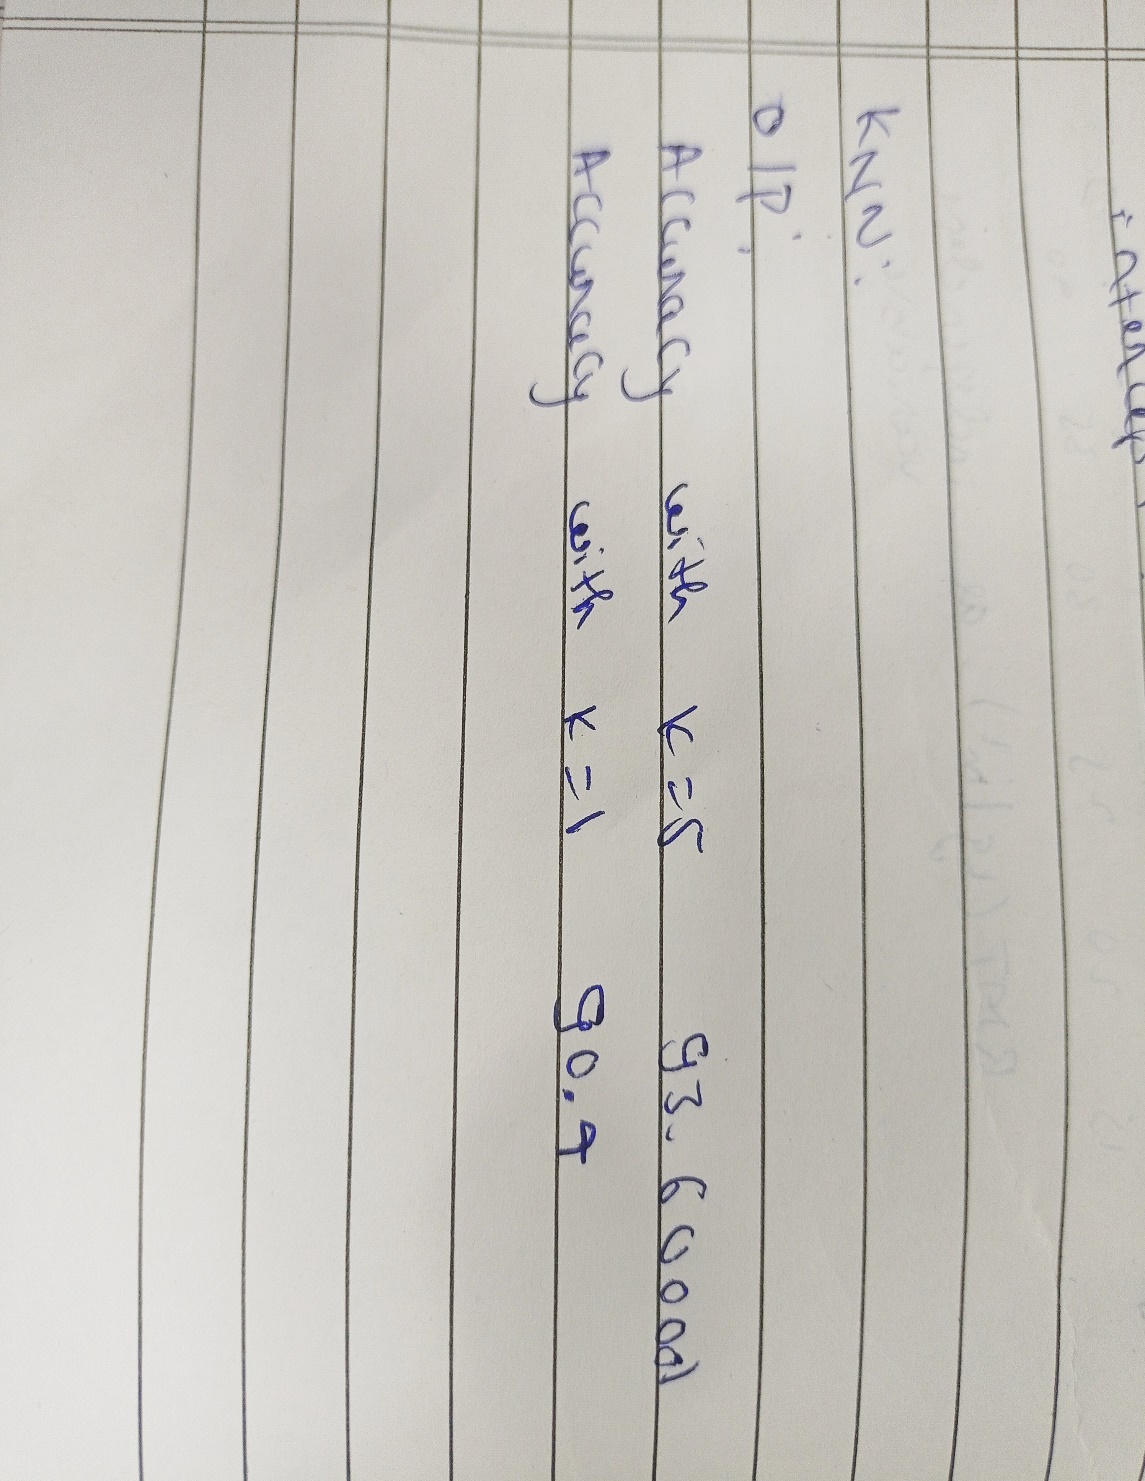 KNN:
O/P:
Accuracy with K=5 93.60000
Accuracy with K=1 90.4